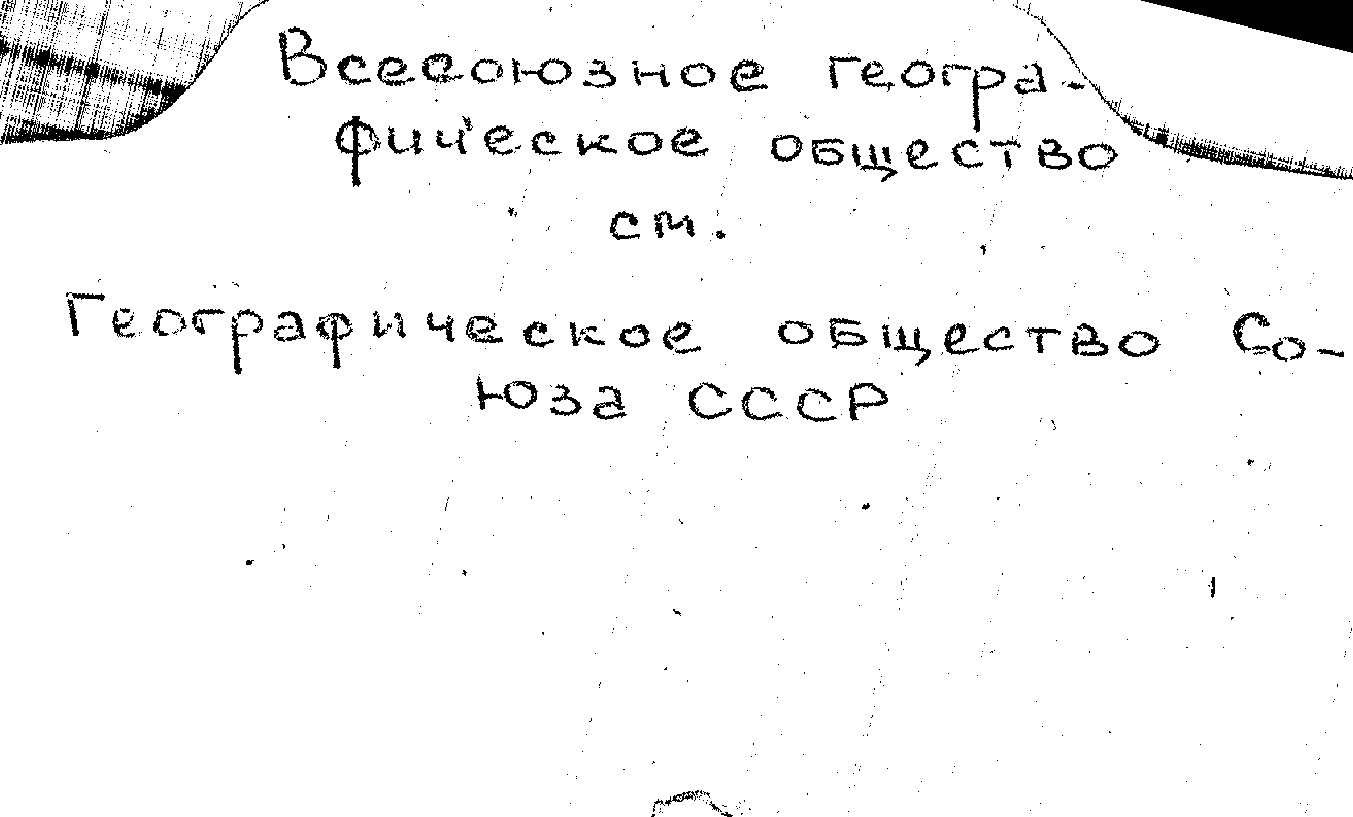 Всесоюзное геогра-
фическое общество
см.
Географическое общество Со-
юза СССР